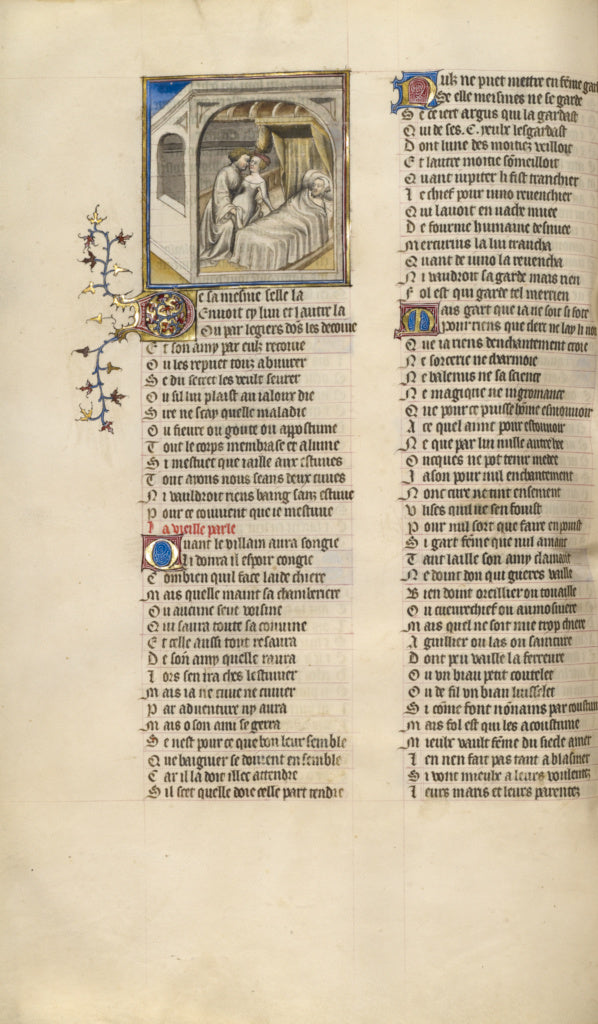 De sa mesme selle la
Enuoit cy lun et lautre la
Ou par legiers dons les decoiue
Et son amy par eulx recoiue
Ou les repuet touz abuurer
Se du secret les veult seurer
Ou sil lui plaist au ialoux die
Sire ne scay quelle maladie
Ou fieure ou goute ou appostume
Tout le corps membrase et alume
Si mestuet que iaille aux estuues
Tout aions nous seans deux cuues
Ni vauldroit riens baing sanz estuue
Pour ce couuient que ie mestuue
La vieille parle
Quant le villain aura songie
Li donra il espoir congie
Combien quil face laide chiere
Mais quelle maint sa chamberiere
Ou aucune seue voisine
Qui saura toute sa couuine
Et celle aussi tout resaura
De son amy quelle raura
Lors sen ira ches lestuuier
Mais ia ne cuue ne cuuier
Par aduenture ny aura
Mais o son ami se gerra
Se nest pour ce que bon leur semble
Que baignier se doiuent en semble
Car il la doit illec attendre
Sil scet quelle doie celle part tendre
Nulz ne puet mettre en feme gar
Se elle meismes ne se garde
Se ce iere argus qui la gardast
Qui de ses .C. yeulx lesgardast
Dont lune des moitiez veilloit
Et lautre moitie someilloit
Quant iupiter li fist tranchier
Le chief pour iuno reuenchier
Qui lauoit en vache muee
De fourme humaine desnuee
Mercurius la lui trancha
Quant de iuno la reuencha
Ni vauldroit sa garde mais rien
Fol est qui garde tel merrien
Mais gart que ia ne soit si sote
Pour riens que clerc ne lay li
Que ia riens denchantement croie
Ne sorcerie ne charmoie
Ne balenus ne sa science
Ne magique ne nigromance
Que pour ce puisse home esmouuoir
A ce quel aime pour estouuoir
Ne que par lui nulle autre
Oncques ne pot tenir medee
Iason pour nul enchantement
Nonc circe ne tint ensement
Vlixes quil ne sen fouist
Pour nul sort que faire en
Si gart feme que nul amant
Tant laille son amy clamant
Ne doint don qui gueres vaille
Bien doint oreillier ou touaille
Ou cueurechief ou aumosniere
Mais quel ne soit mie trop chiere
Aguillier ou las ou sainture
Dont peu vaille la ferreure
Ou vn biau petit coutelet
Ou de fil vn biau luisselet
Si come font nonains par coustum
Mais fol est qui les acoustume
Mieulx vault feme du siecle amer
Len nen fait pas tant a blasmer
Si vont mieulx a leurs voulentez
Leurs maris et leurs parentez